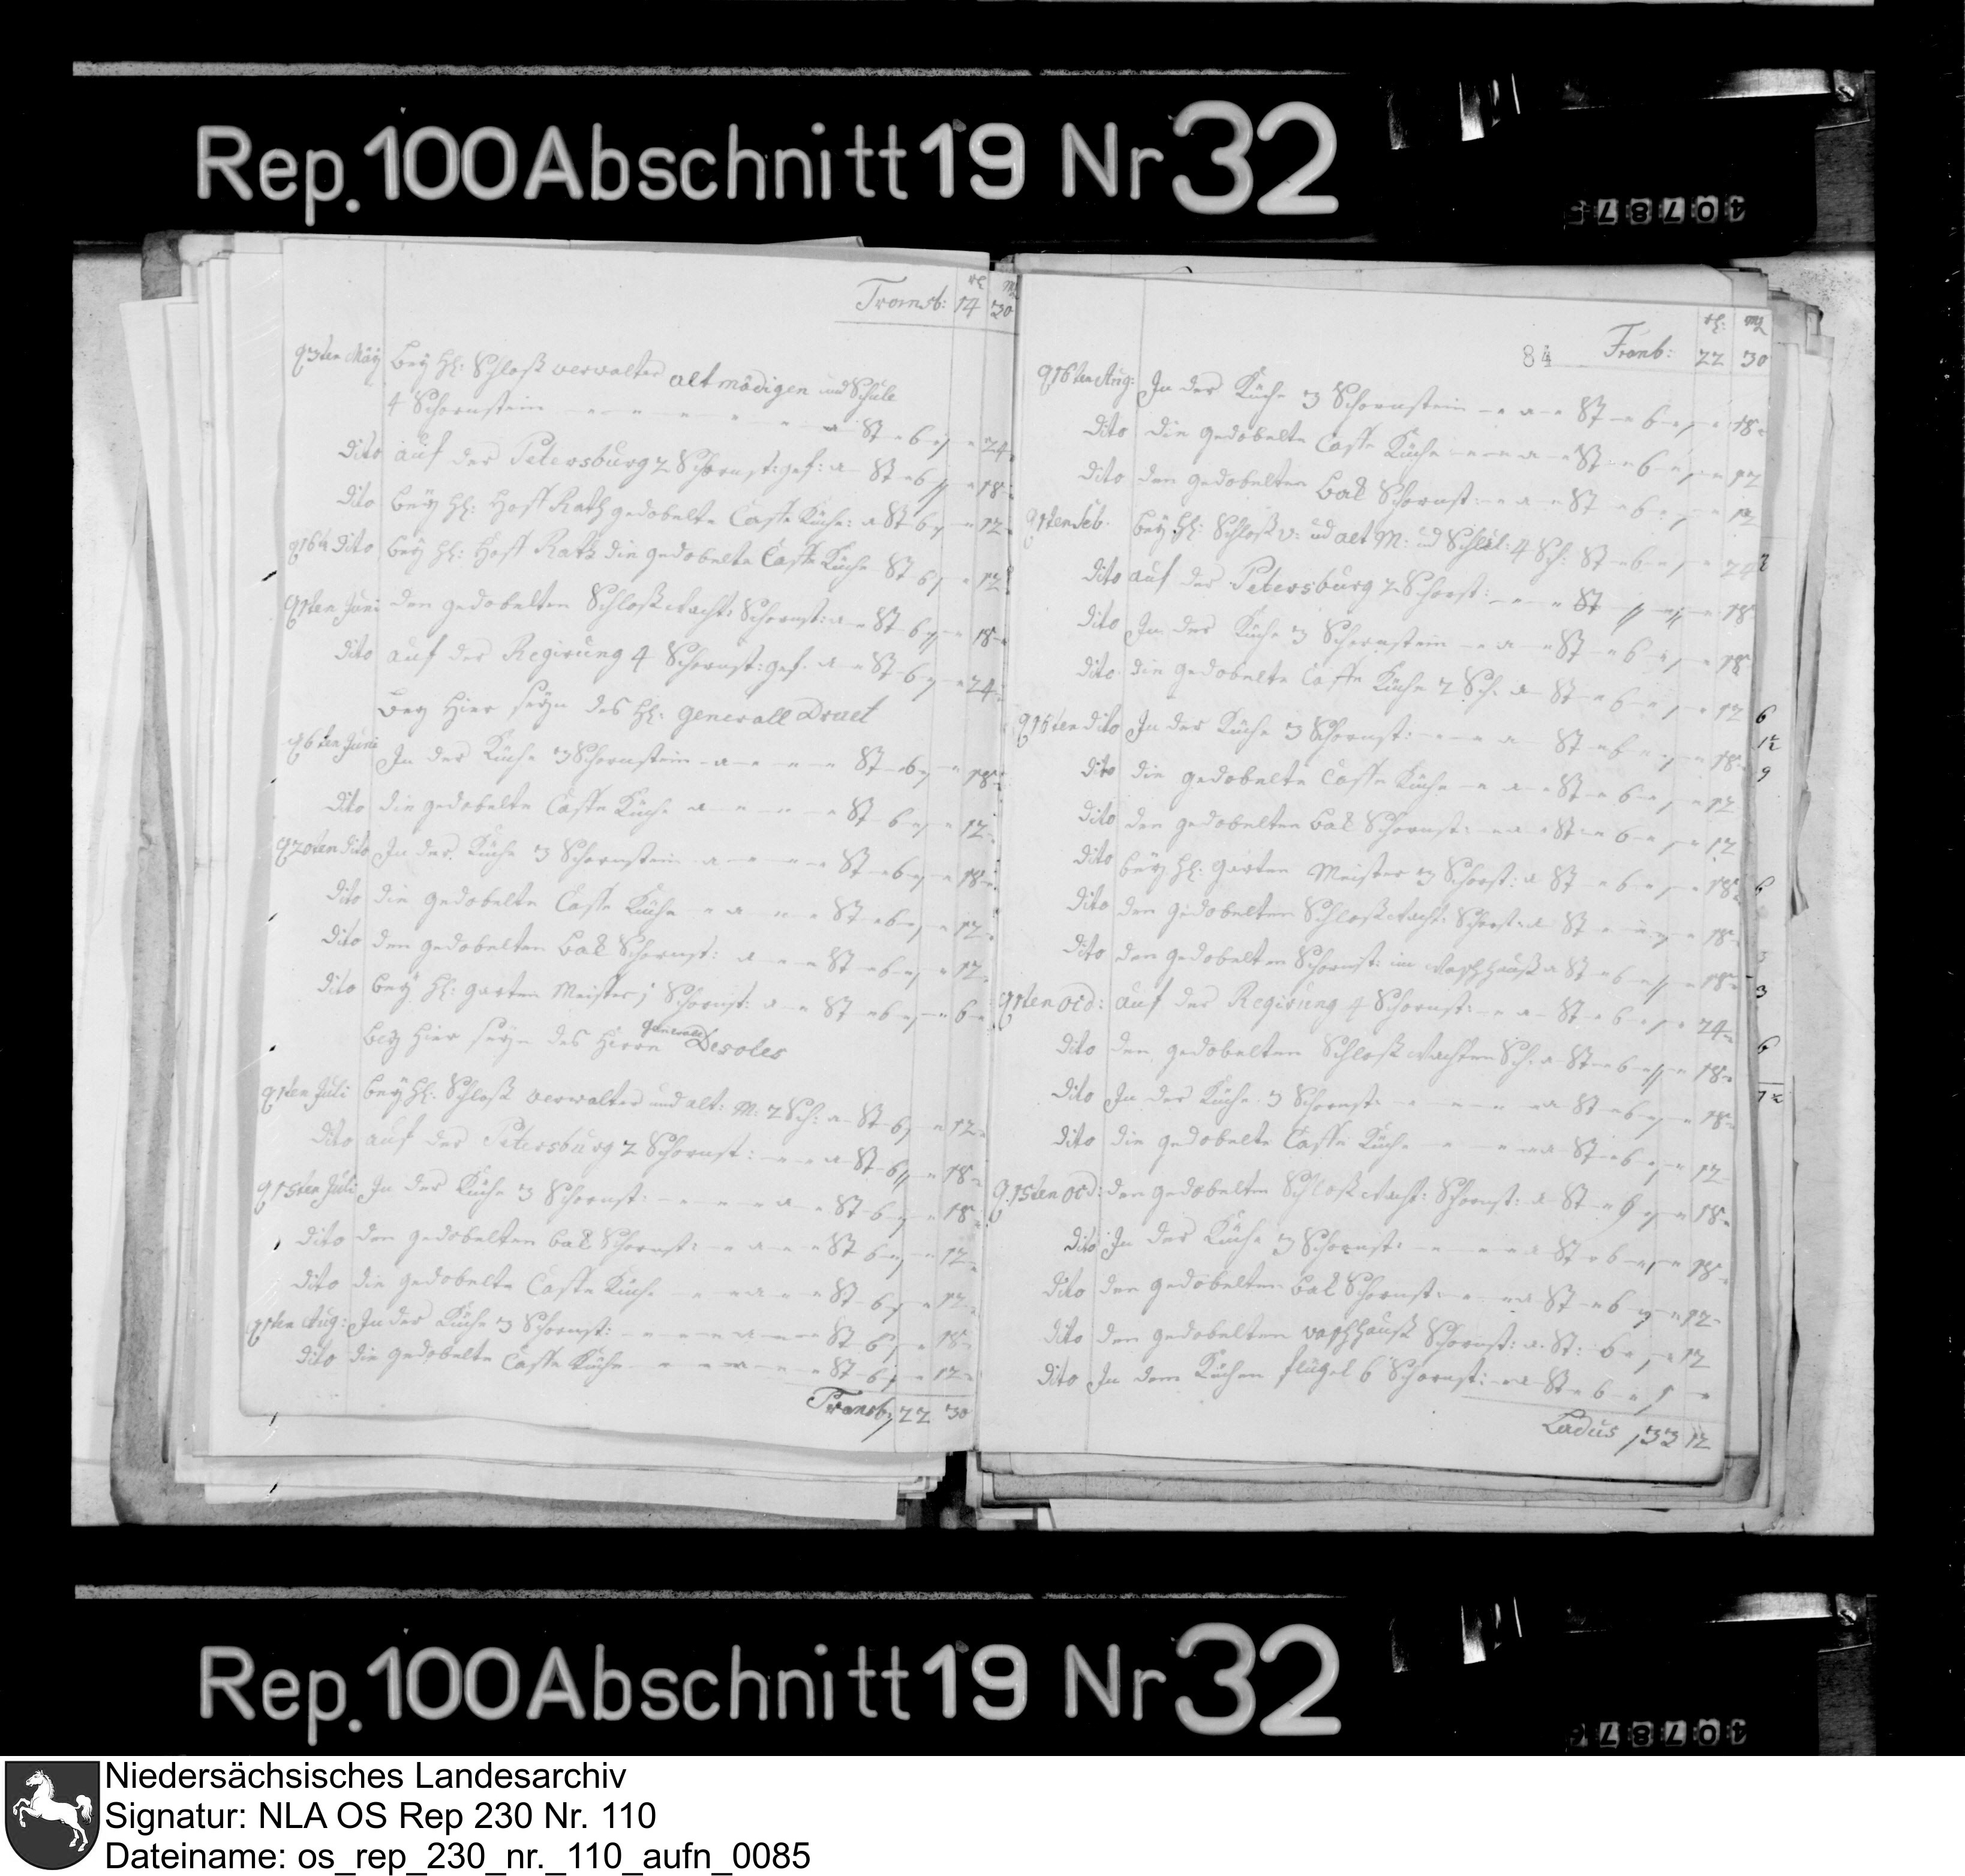 Rep. 100 Abschnitt 19 Nr 32
Transb: 14 30
den 3ten Mäy beÿ H: Schloß verwalter altmödigen und Schule
4 Schornstein St 6 24
dito auf der Petersburg 2 Schornst: gef: a St 18
dito beÿ H: Hoff Rath gedobelte Caffe Küche: a St 6 12
dito beÿ H: Hoff Rath die gedobelte Caffe Küche St 6 12
d 1ten Juni den gedobelten Schloß Schornst: a St 18
dito auf der Regirung 4 Schornst: gef. a St 6 24
beÿ Hier seÿn des H: Generall
6ten Juni In der Küche 3 Schornstein a St 6 18
dito die gedobelte Caffe Küche a St 6 12
d 20ten dito In der Küche 3 Schornstein a St 6 18
dito die gedobelte Caffe Küche a St 6 12
dito den gedobelten Schornst: a St 6 12
dito beÿ H: garten Meister 1 Schornst: a St 6 6
beÿ Hier seÿn des Herrn generall Desoles
d 1ten Juli beÿ H: Schloß verwalter und alt: M: 2 Sch: a St 6 12
dito auf der Petersburg 2 Schornst: a St 18
d 15ten Juli In der Küche 3 Schornst: a St 6 18
dito den gedobelten Schornst: a St 6 12
dito die gedobelte Caffe Küche a St 6 12
d 1ten Aug: In der Küche 3 Schornst: a St 6 18
dito die gedobelte Caffe Küche a St 6 12
Transb: 22 30
84 Tranb: 22 30
d 16ten Aug: In der Küche 3 Schornstein a St 6 18
dito die gedobelte Caffe Küche a St 6 12
dito den gedobelten Schornst: a St 6 12
d 1ten Seb. beÿ H: Schloß v: ud alt M: ud Schul: 4 Sch: St 6 24
dito auf der Petersburg 2 Schorst: St 18
dito In der Küche 3 Schornstein a St 6 18
dito die gedobelte Caffe Küche 2 Sch. a St 6 12
d 16ten dito In der Küche 3 Schornst: a St 6 18
dito die gedobelte Caffe Küche a St 6 12
dito den gedobelten Schornst: a St 6 12
dito beÿ H: garten Meister 3 Schorst: a St 6 18
dito den gedobelten Schloß Schorst: a St 18
dito den gedobelten Schornst: im a St 6 18
d 1ten ocd: auf der Regirung 4 Schornst: a St 6 24
dito den gedobelten Schloß Sch: a St 6 18
dito In der Küche 3 Schornst: a St 6 18
dito die gedobelte Caffe Küche a St 6 12
d 15ten ocd: den gedobelten Schloß Schornst: a St 9 18
dito In der Küche 3 Schornst: a St 6 18
dito den gedobelten Schornst: a St 6 12
dito den gedobelten Schornst: a St: 6 12
dito In dem Küchen flügel 6 Schornst: a St 6 1
Ladus 33 12
Rep. 100 Abschnitt 19 Nr 32
Niedersächsisches Landesarchiv
Signatur: NLA OS Rep 230 Nr. 110
Dateiname: os_rep_230_nr._110_aufn_0085